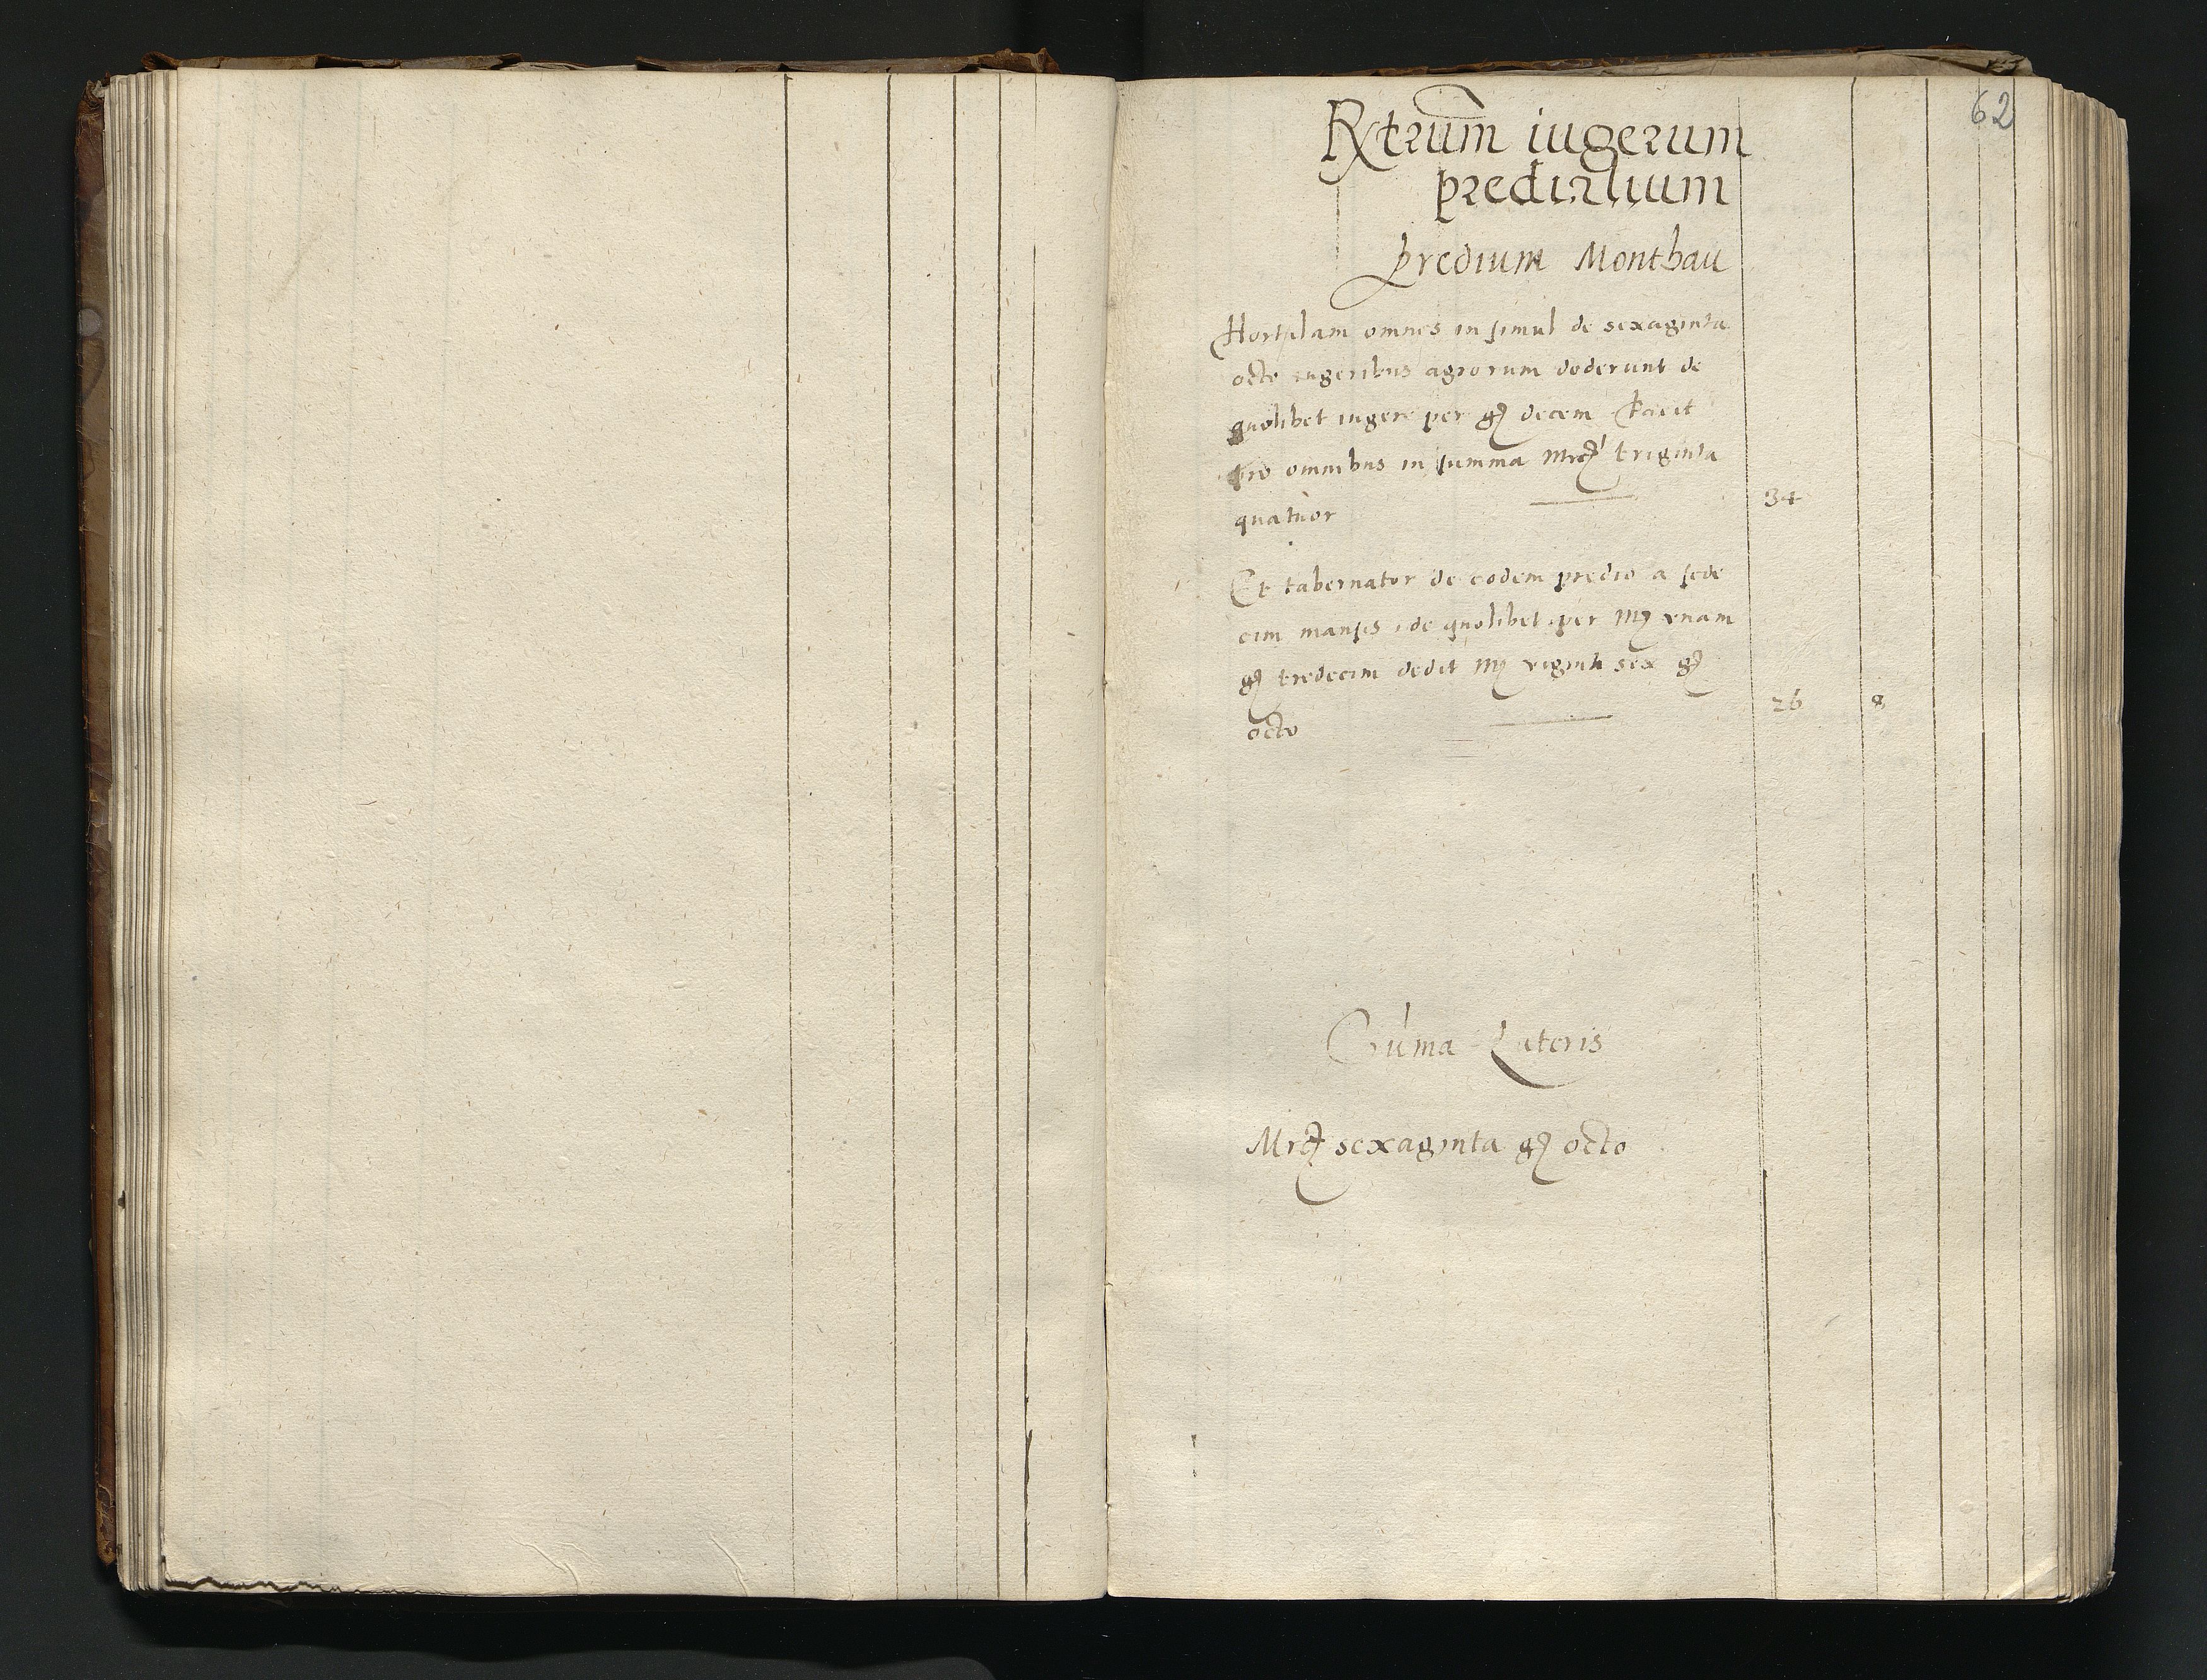 62
Rxtrum iugerum
predialium
predium Monthau
Hortulam omnes in simul de sexaginta
octo iugeribus agrorum dederunt de
quolibet iugere per gℓ decem Facit
pro omnibus in summa Mrcȝ triginta
quatuor 34
Et tabernator de eodem predio a sede
cim mansis de quolibet per Mȝ vnam
gℓ tredecim dedit Mȝ viginti sex gℓ
octo 26 8
Suma Lateris
Mrcȝ sexaginta gℓ octo